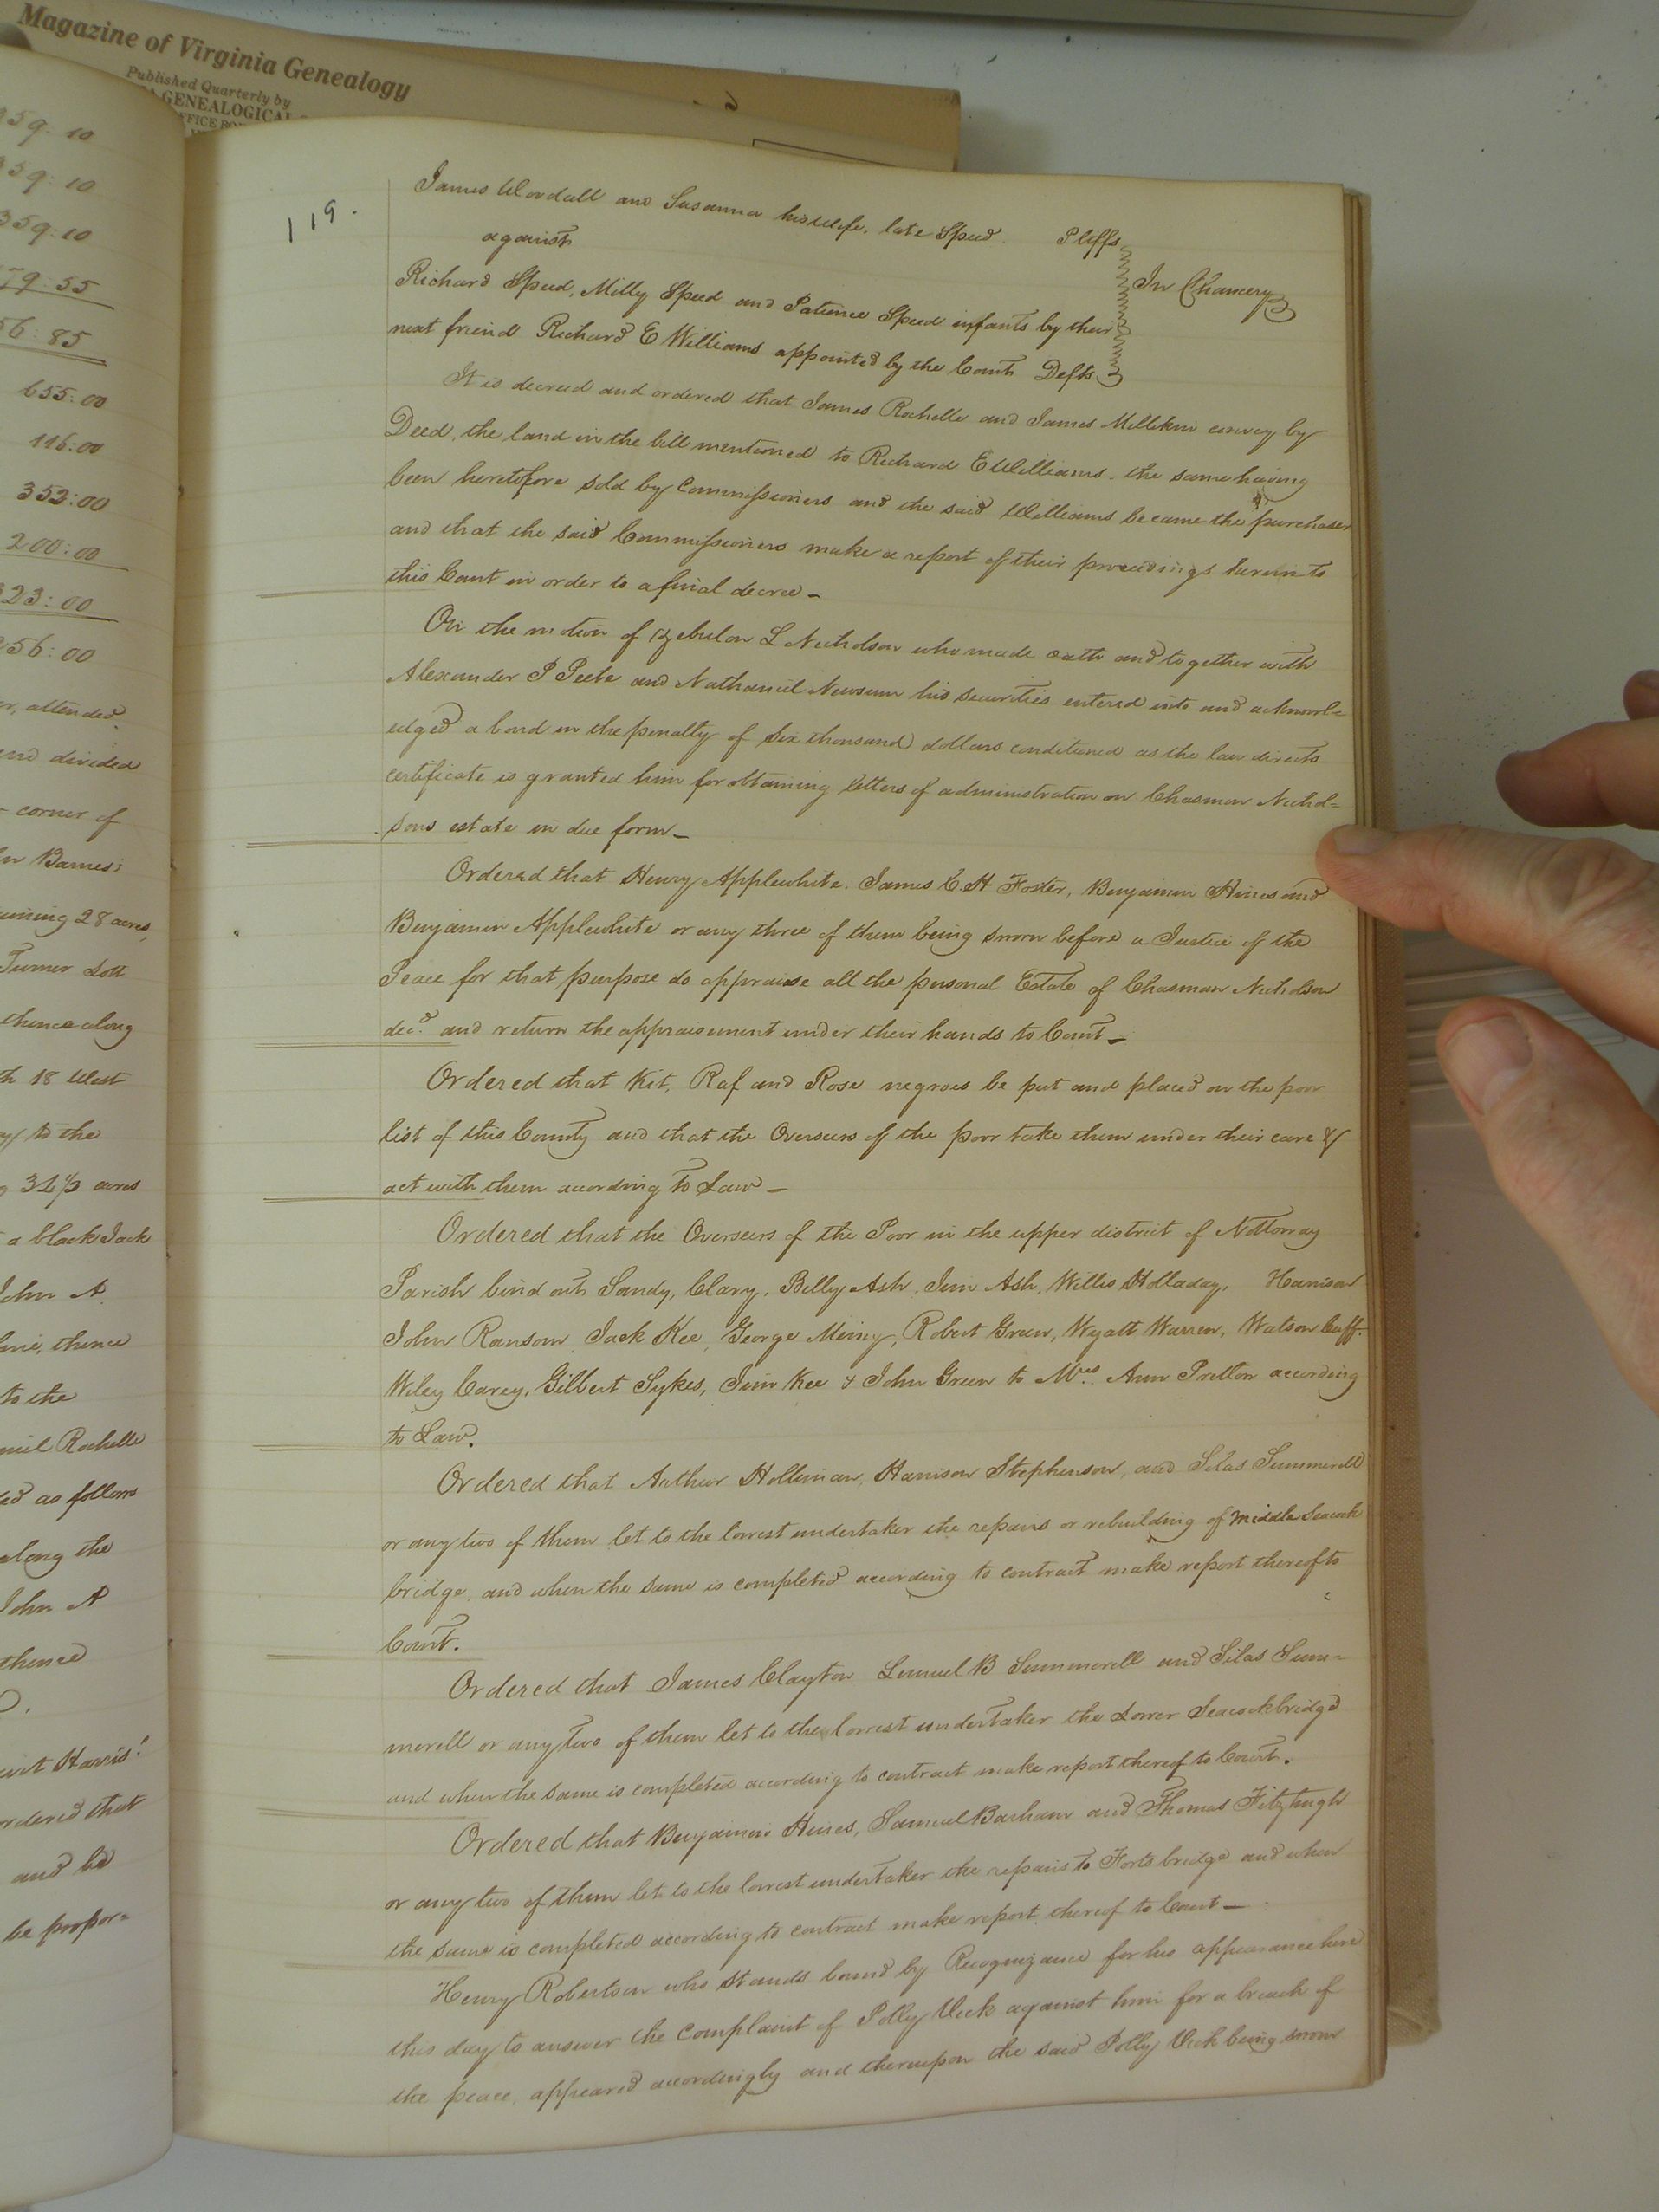 Magazine of Virginia Genealogy
Published Quarterly by
GENEALOGICAL
FFICE BO
119.
James Wordall and Susanna his Wife, late Speed. Pltffs
against
In Chancery
Richard Speed, Milly Speed and Patience Speed infants by their
next friend Richard E Williams appointed by the Court Defts
It is decreed and ordered that James Rochelle and James Millikin convey by
Deed, the land in the bill mentioned to Richard E Williams, the same having
been heretofore sold by Commissioners and the said Williams became the purchaser
and that the said Commissioners make a report of their proceedings herein to
this Court in order to a final decree —
On the motion of Zebulon L Nicholson who made oath and together with
Alexander P Peete and Nathaniel Newsum his securities entered into and acknowl=
edged a bond in the penalty of six thousand dollars conditioned as the law directs
certificate is granted him for obtaining letters of administration on Chasman Nichol=
sons estate in due form —
Ordered that Henry Applewhite, James C. H Foster, Benjamin Hines and
Benjamin Applewhite or any three of them being sworn before a Justice of the
Peace for that purpose do appraise all the personal Estate of Chasman Nicholson
decd. and return the appraisement under their hands to Court —
Ordered that Kit, Raf and Rose negroes be put and placed on the poor
list of this County and that the Overseers of the poor take them under their care &
act with them according to Law —
Ordered that the Overseers of the Poor in the upper district of Nottoway
Parish bind out Sandy, Clary, Billy Ash, Jim Ash, Willis Holladay, Harrison
John Ransom, Jack Kee, George Meiny, Robert Green, Wyatt Warren, Watson Cuff.
Wiley Carey, Gilbert Sykes, Jim Kee & John Green to Mrs. Ann Pretlow according
to Law.
Ordered that Arthur Holliman, Harrison Stephenson, and Silas Summerell
or any two of them let to the lowest undertaker the repairs or rebuilding of Middle Seacock
bridge, and when the same is completed according to contract make report thereof to
Court.
Ordered that James Clayton Lemuel B Summerell and Silas Sum=
merell or any two of them let to the lowest undertaker the Lower Seacock bridge
and when the same is completed according to contract make report thereof to Court.
Ordered that Benjamin Hines, Samuel Barham and Thomas Fitzhugh
or any two of them let to the lowest undertaker the repairs to Forts bridge and when
the same is completed according to contract make report thereof to Court —
Henry Robertson who stands bound by Recognizance for his appearance here
this day to answer the Complaint of Polly Vick against him for a breach of
the peace, appeared accordingly and thereupon the said Polly Vick being sworn
359:10
359:10
359:10
79:55
56:85
655:00
116:00
353:00
200:00
323:00
256:00
attended
and divided
corner of
Barnes
28 acres,
Turner Lott
thence along
18 West
to the
31 1/2 acres
a black Jack
John A.
line, thence
to the
Rochelle
as follows
along the
John A
thence
Harris'
ordered that
and be
be propor=